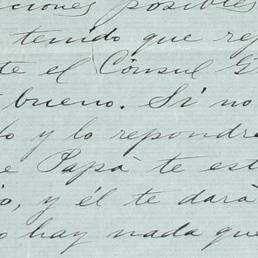 ciones posibles
tenido que re
te el Cónsul G
bueno. Si no
o y lo repondre
e Papà te est
o, y él te darà
o hay nada que